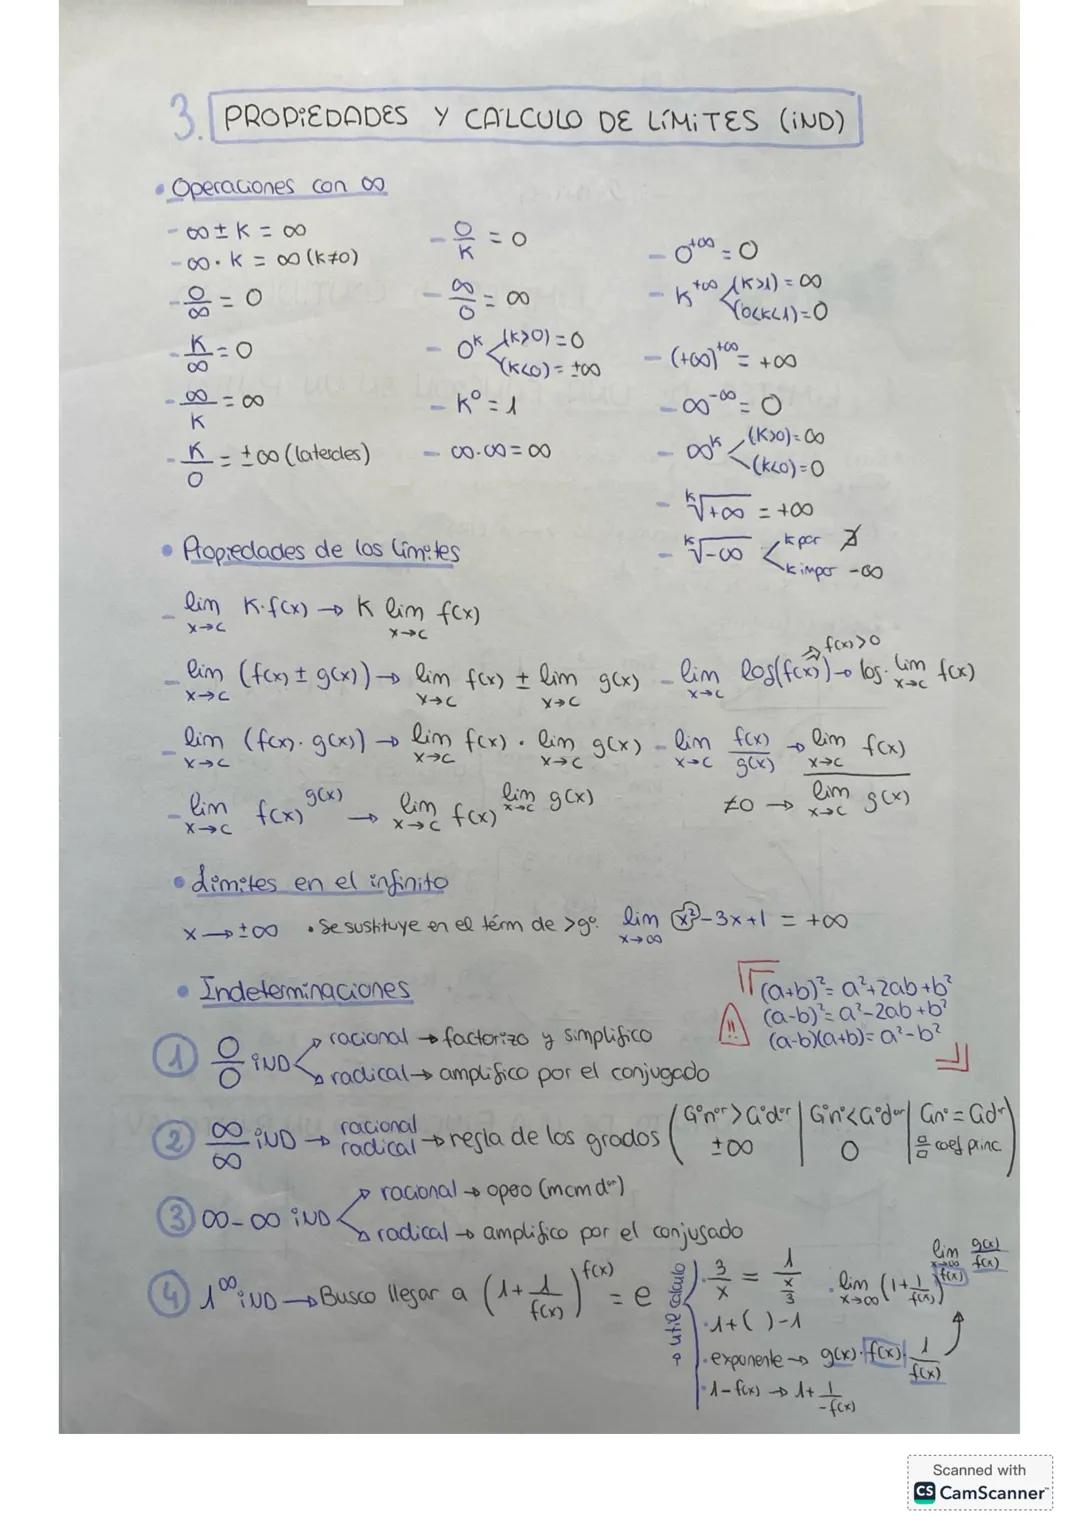 3. PROPIEDADES Y CÁLCULO DE LÍMITES (IND)
• Operaciones con ∞
- ∞ ± K = ∞
- ∞ · K = ∞ (K≠0)
- 0/∞ = 0
- K/∞ = 0
- ∞/K = ∞
- K/0 = ±∞ (laterales)
- 0/K = 0
- ∞/0 = ∞
- 0^K < (K>0) = 0
(K<0) = ±∞
- K^0 = 1
- ∞·∞ = ∞
- 0^+∞ = 0
- K^+∞ < (K>1) = ∞
(0<K<1) = 0
- (+∞)^+∞ = +∞
- ∞^-∞ = 0
- ∞^K < (K>0) = ∞
(K<0) = 0
- ᴷ√+∞ = +∞
- ᴷ√-∞ < K par ∄
K impar -∞
• Propiedades de los límites
- lim x→c K·f(x) → K lim x→c f(x)
- lim x→c (f(x) ± g(x)) → lim x→c f(x) ± lim x→c g(x)
- lim x→c log(f(x)) → log · lim x→c f(x)
⇒ f(x)>0
- lim x→c (f(x) · g(x)) → lim x→c f(x) · lim x→c g(x)
- lim x→c f(x)/g(x) → lim x→c f(x) / lim x→c g(x)
≠0 →
- lim x→c f(x)^g(x) → lim x→c f(x)^lim x→c g(x)
• Límites en el infinito
x → ±∞ • Se sustituye en el térm de >gº. lim x→∞ x² - 3x + 1 = +∞
• Indeterminaciones
!!
(a+b)² = a² + 2ab + b²
(a-b)² = a² - 2ab + b²
(a-b)(a+b) = a² - b²
① 0/0 IND
racional → factorizo y simplifico
radical → amplifico por el conjugado
② ∞/∞ IND → racional
radical → regla de los grados (Gºnºr > Gºdºr | Gºnºr < Gºdºr | Gnº = Gdʳ)
±∞ | 0 | a/a coef princ.
③ ∞ - ∞ IND
racional → opero (mcm dºr)
radical → amplifico por el conjugado
④ 1^∞ IND → Busco llegar a (1 + 1/f(x))^f(x) = e
→ útil cálculo
· 3/x = 1/(x/3)
· 1 + ( ) - 1
· exponente → g(x) · f(x) · 1/f(x)
· 1 - f(x) → 1 + 1/-f(x)
· lim x→∞ (1 + 1/f(x))^f(x)^lim x→∞ g(x)/f(x)
Scanned with
CS CamScanner™